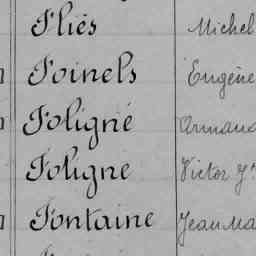 Fliès Michel
Foinels Eugène
Foligné Armand
Foligne Victor Jh
Fontaine Jean Ma